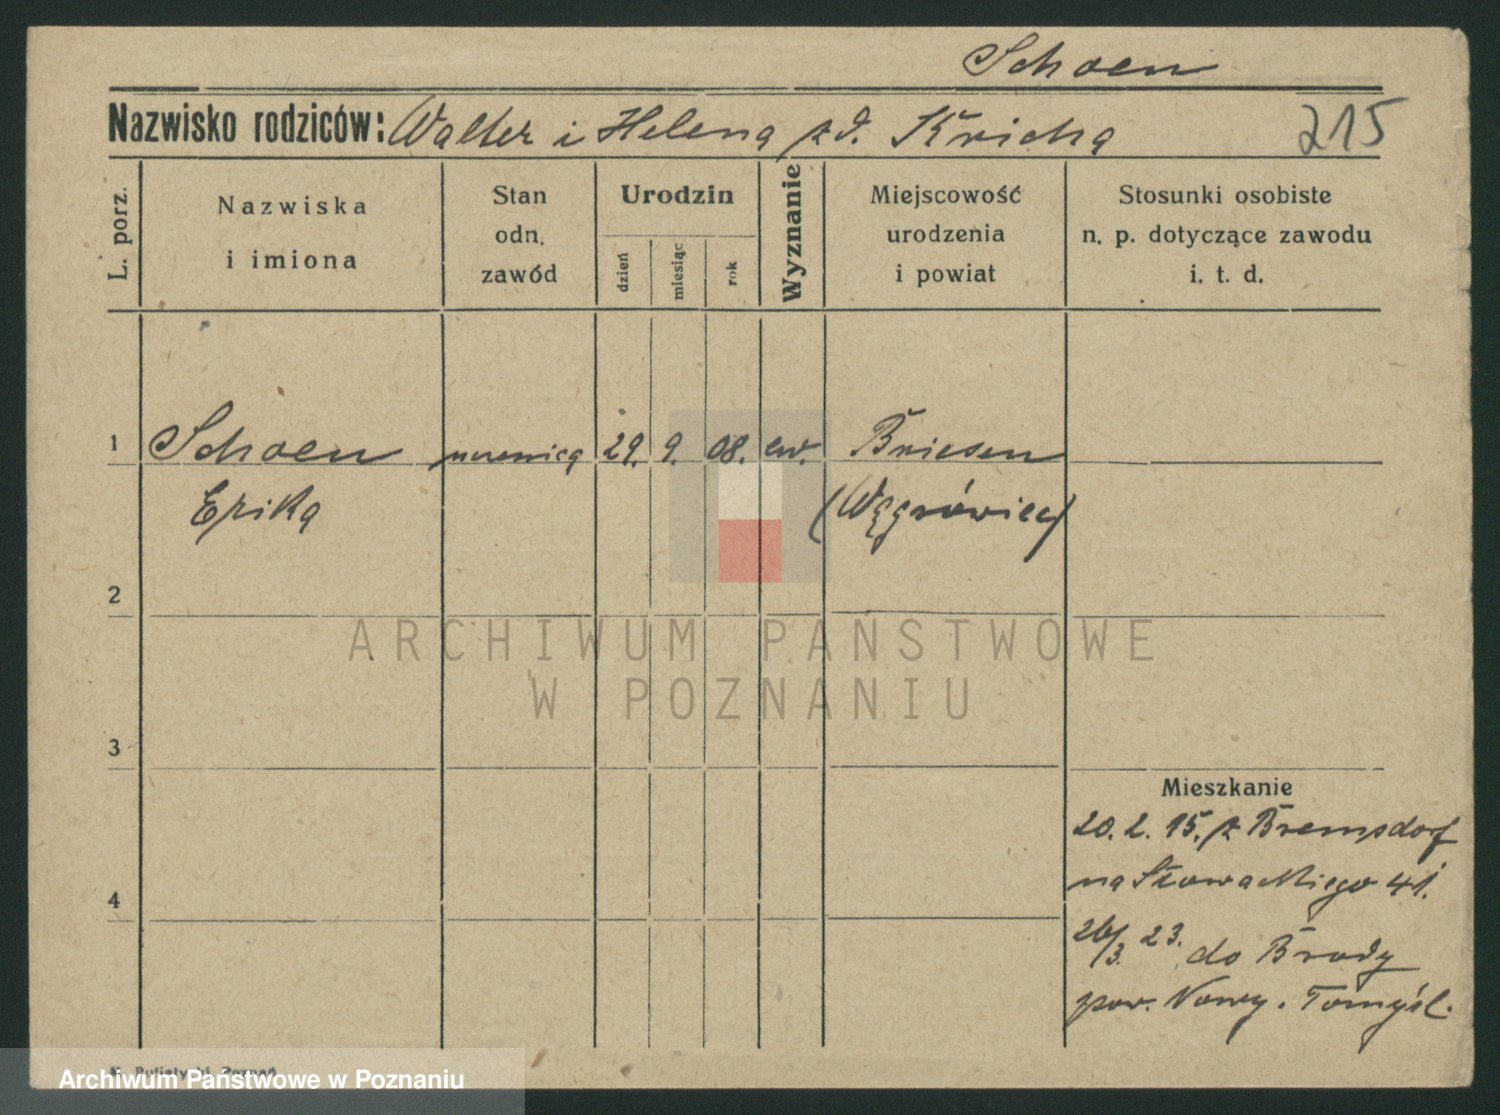 Schoen
Nazwisko rodziców: Walter i Helena zd. Kricha
215
L. porz.
Nazwiska
i imiona
Stan
odn.
zawód
Urodzin
dzień
miesiąc
rok
Wyznanie
Miejscowość
urodzenia
i powiat
Stosunki osobiste
n. p. dotyczące zawodu
i. t. d.
1 Schoen uczenica 29. 9. 08. ew. Briesen
Erika (Wągrówiec)
2
ARCHIWUM PAŃSTWOWE
W POZNANIU
3
Mieszkanie
20. 2. 15. z Bremsdorf
na Słowackiego 41.
4
26/3. 23. do Brody
pow. Nowy. Tomyśl.
Poznań
Archiwum Państwowe w Poznaniu